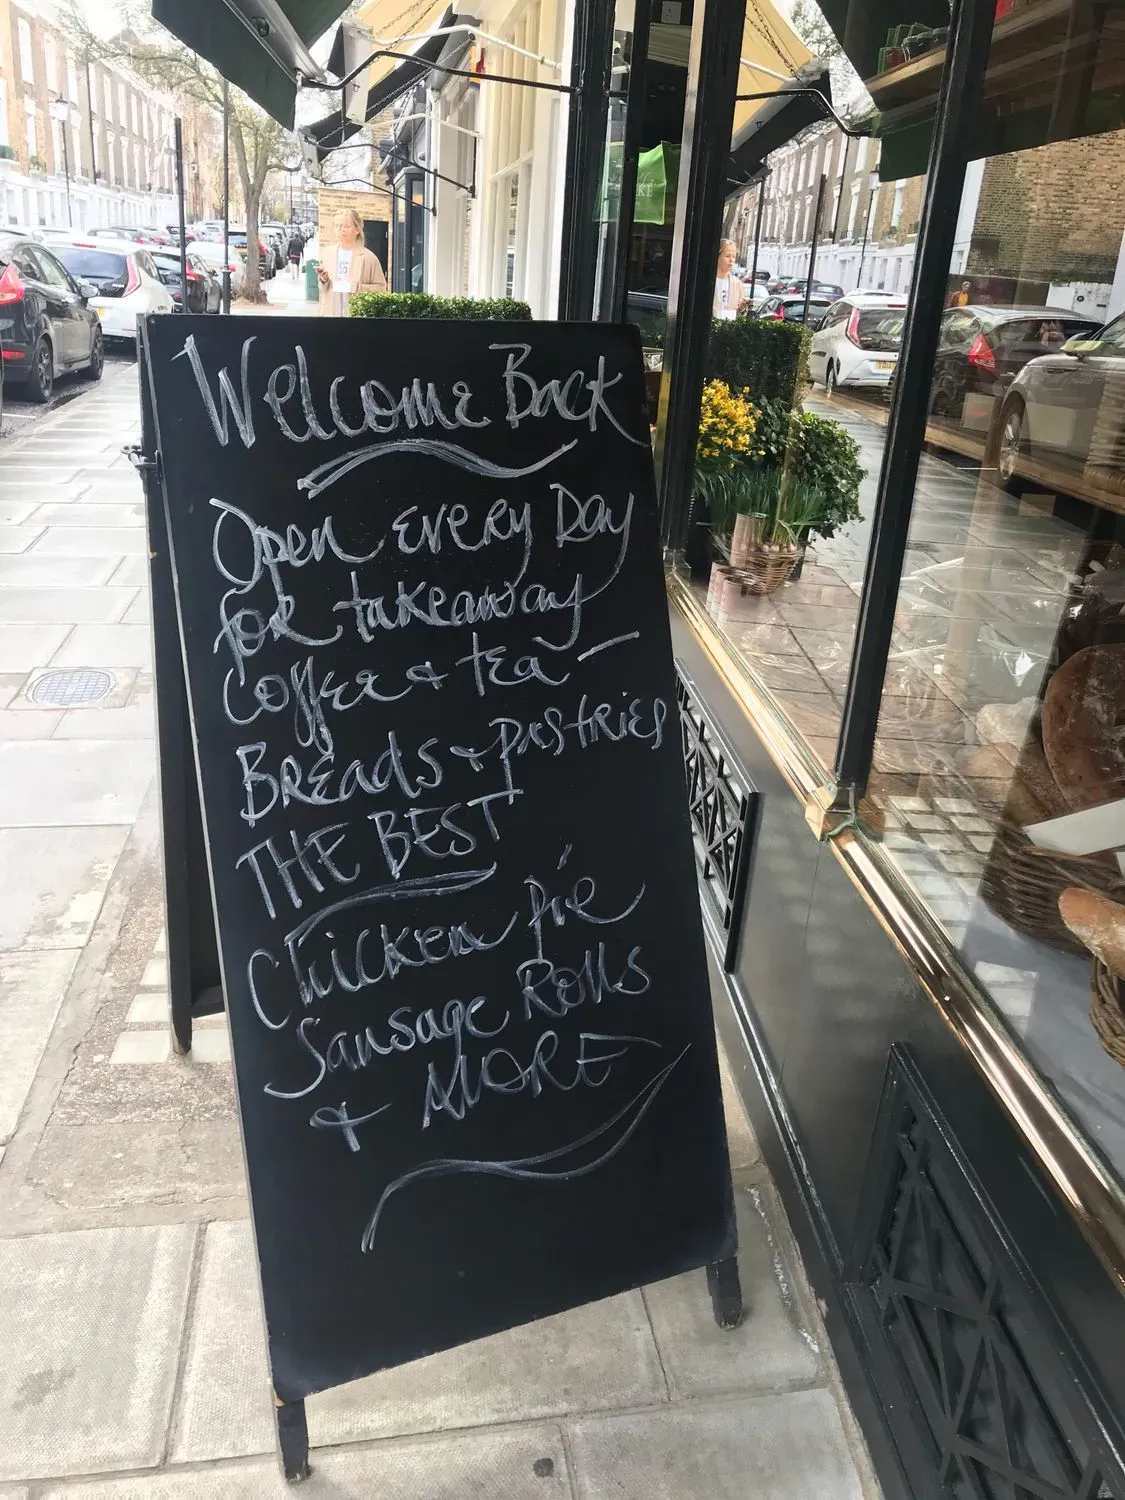 Welcome Back
Open Every Day
for takeaway
Coffee + tea -
Breads + pastries
THE BEST
Chicken pie
Sausage Rolls
+ MORE